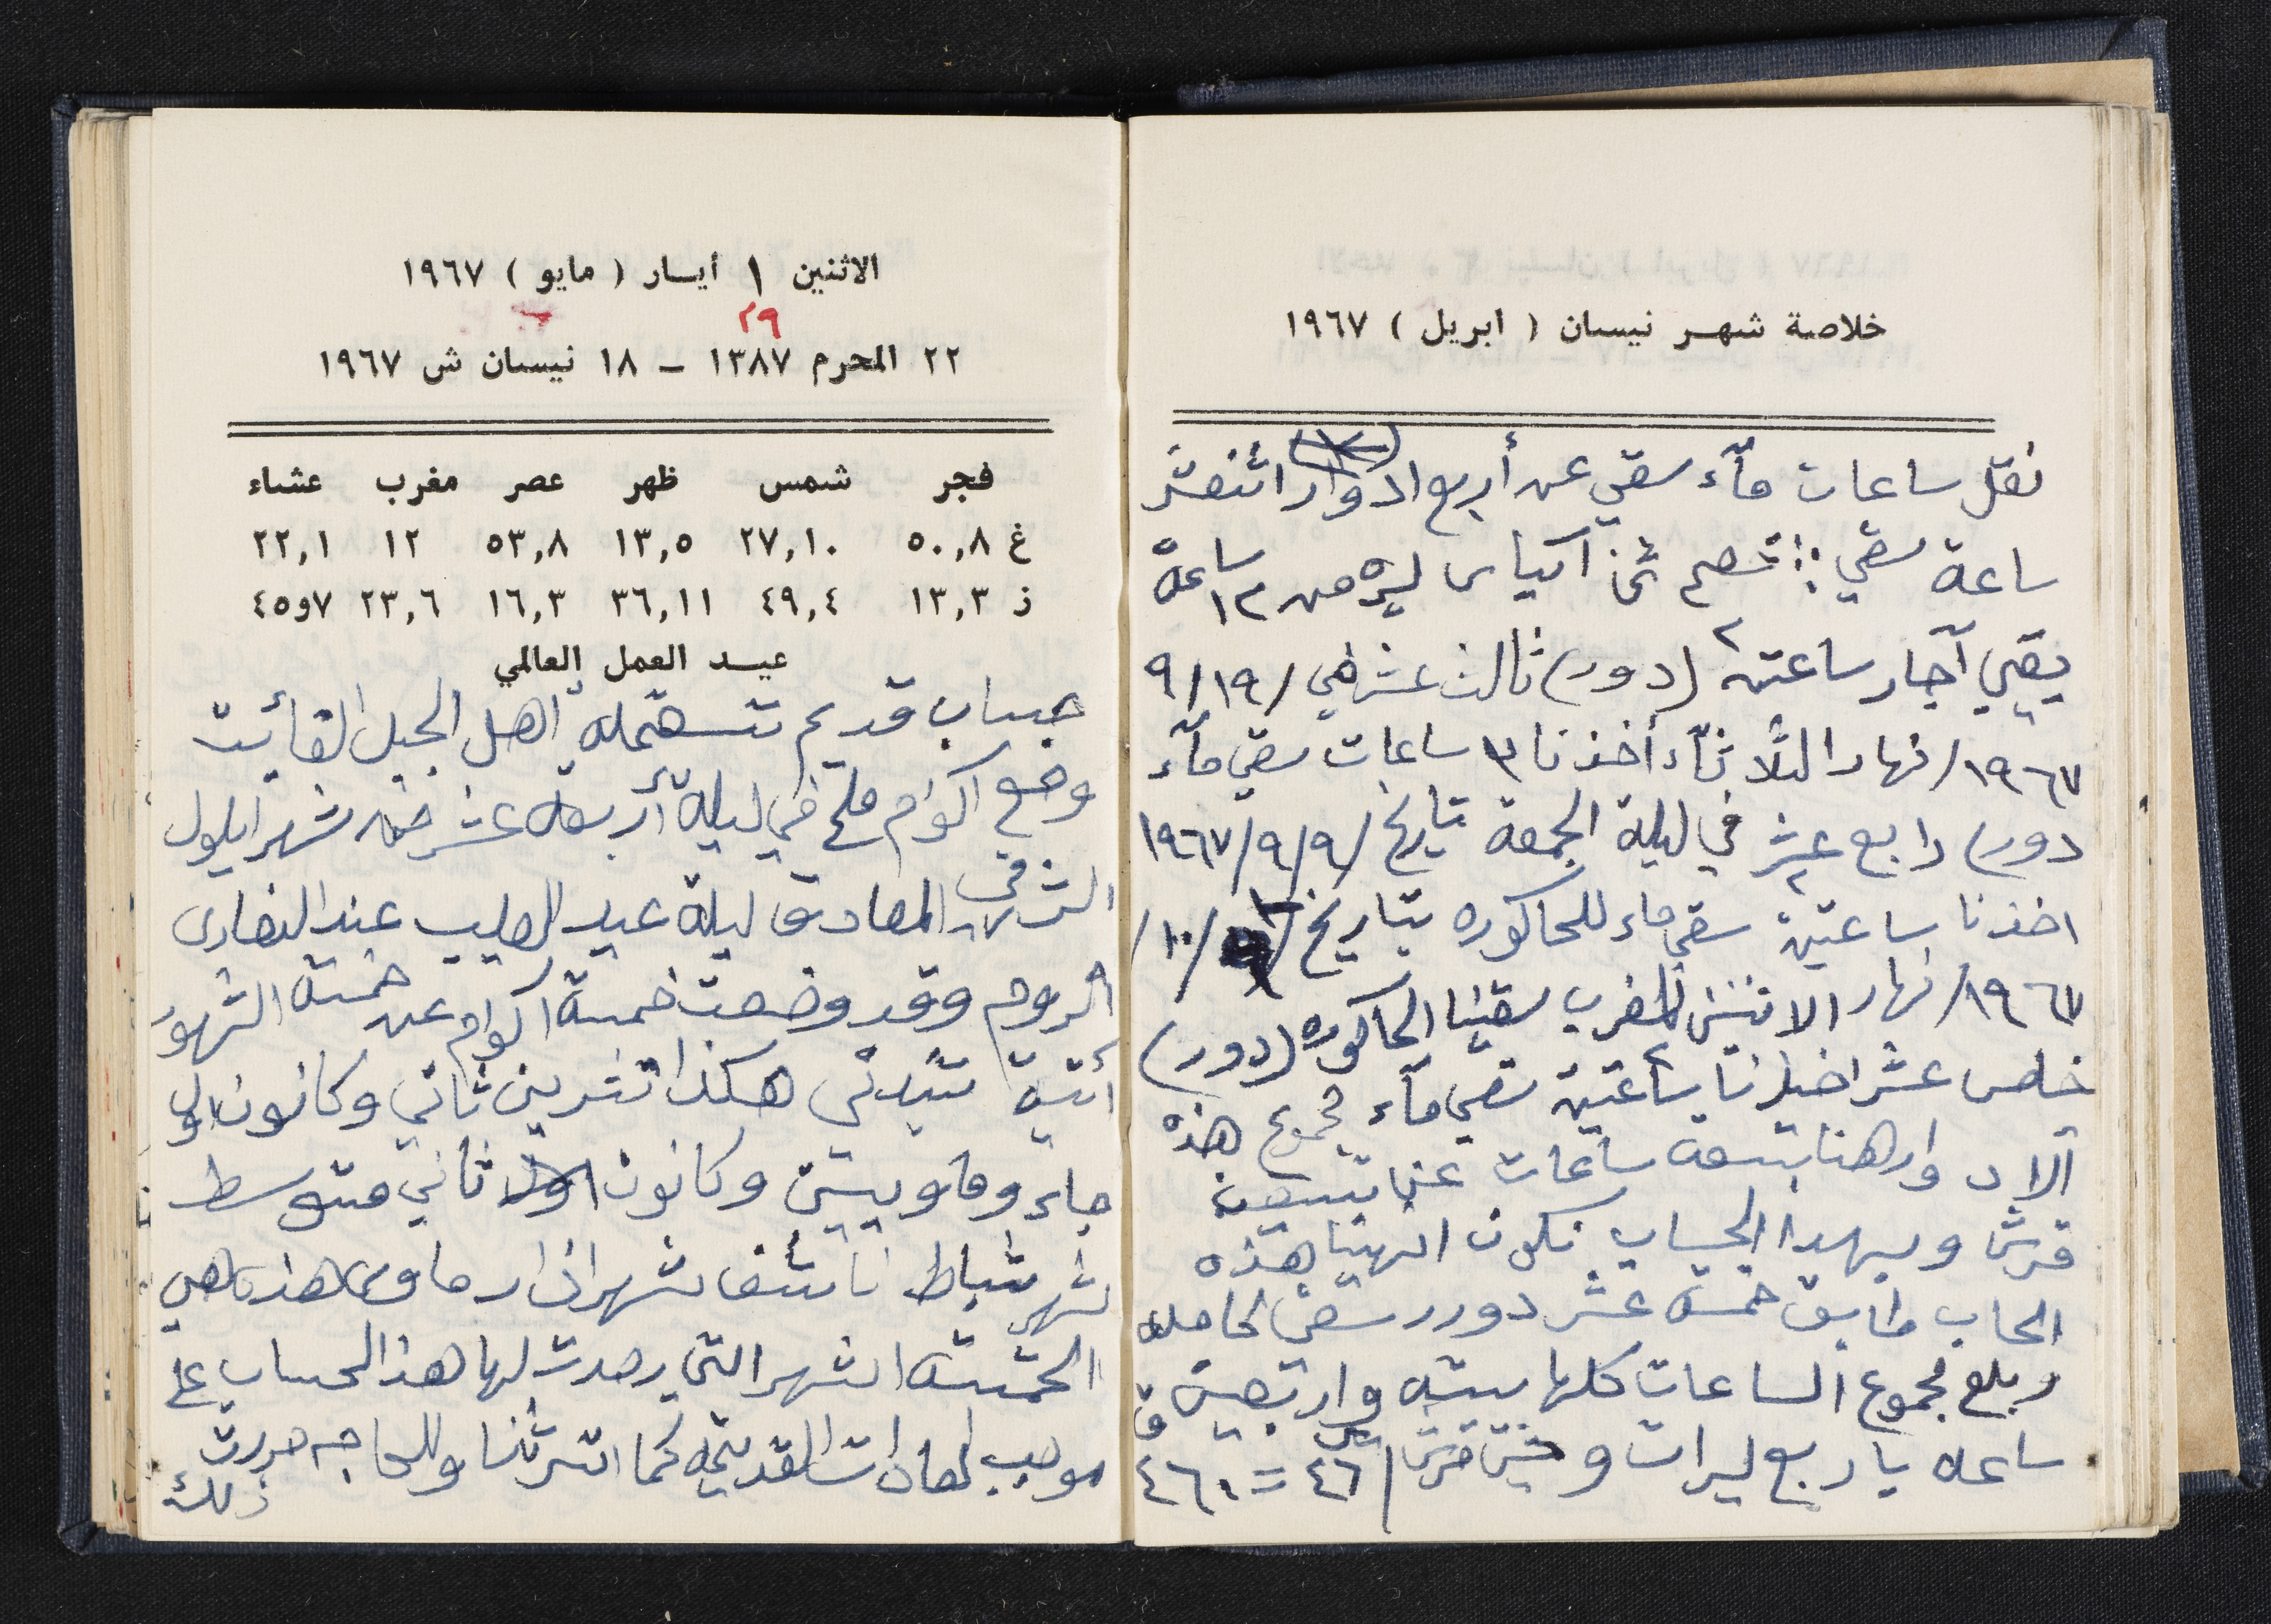 خلاصة شهر نيسان ( ابريل ) ١٩٦٧
نقل ساعات مآء سقي عن أربع ادوار اثنعشر
ساعة سقي تخصم ثمن اكياس ليره من ١٢ ساعة
بقي آجار ساعتين ٢ (دور) ثالث عشر في /١٩/٩
١٩٦٧/ نهار الثلاثآء أخذنا ٣ ساعات سقي مآء
دور) رابع عشر في ليلة الجمعة تاريخ /٩/٩/١٩٦٧
اخذنا ساعتين ٢ سقي ماء للحاكوره بتاريخ /١٠/
١٩٦٧/ نهار الاثنين المغرب سقينا الحاكوره (دور)
خامس عشر اخذنا ساعتين ٢ سقي مآء مجموع هذه
الادوار هنا تسعة ساعات عنها تسعين
قرش وبهذا الحساب نكون انهينا هذه
الحساب طابق خمسة عشر دور سقي كامله
وبلغ مجموع الساعات كلها سته واربعين
ساعه باربع ليرات وستين قرش / ٤٦ = ٤٦٠ ق
الاثنين ١ أيسار ( مايو ) ١٩٦٧
٢٩
٢٢ المحرم ١٣٨٧ – ١٨ نيسان ش ١٩٦٧
فجر شمس ظهر عصر مغرب عشاء
غ ٥٠,٨ ٢٧,١٠ ١٣,٥ ٥٣,٨ ١٢ ٢٢,١
ز ١٣,٣ ٤٩,٤ ٣٦,١١ ١٦,٣ ٢٣,٦ ٧و٤٥
عيد العمل العالمي
حساب قديم تستعمله أهل الجبل
وضع اكوام ملح في ليلة أربعة عشر من شهر ايلول
الشرقي المصادف ليلة عيد الصليب عند النصارى
الروم وقد وضعت خمسة اكوام عن خمسة الشهور
أتية تبتدي هكذا تشرين ثاني وكانون اول
جاء وماويين وكانون ثاني متوسط
شهر شباط ناشف شهر اذار ماوي هذه هي
الخمسة اشهر التي رصدت لها هذا الحساب على
موجب العادات القديمه كما اشرنا وللحاجه حررت
ذلك